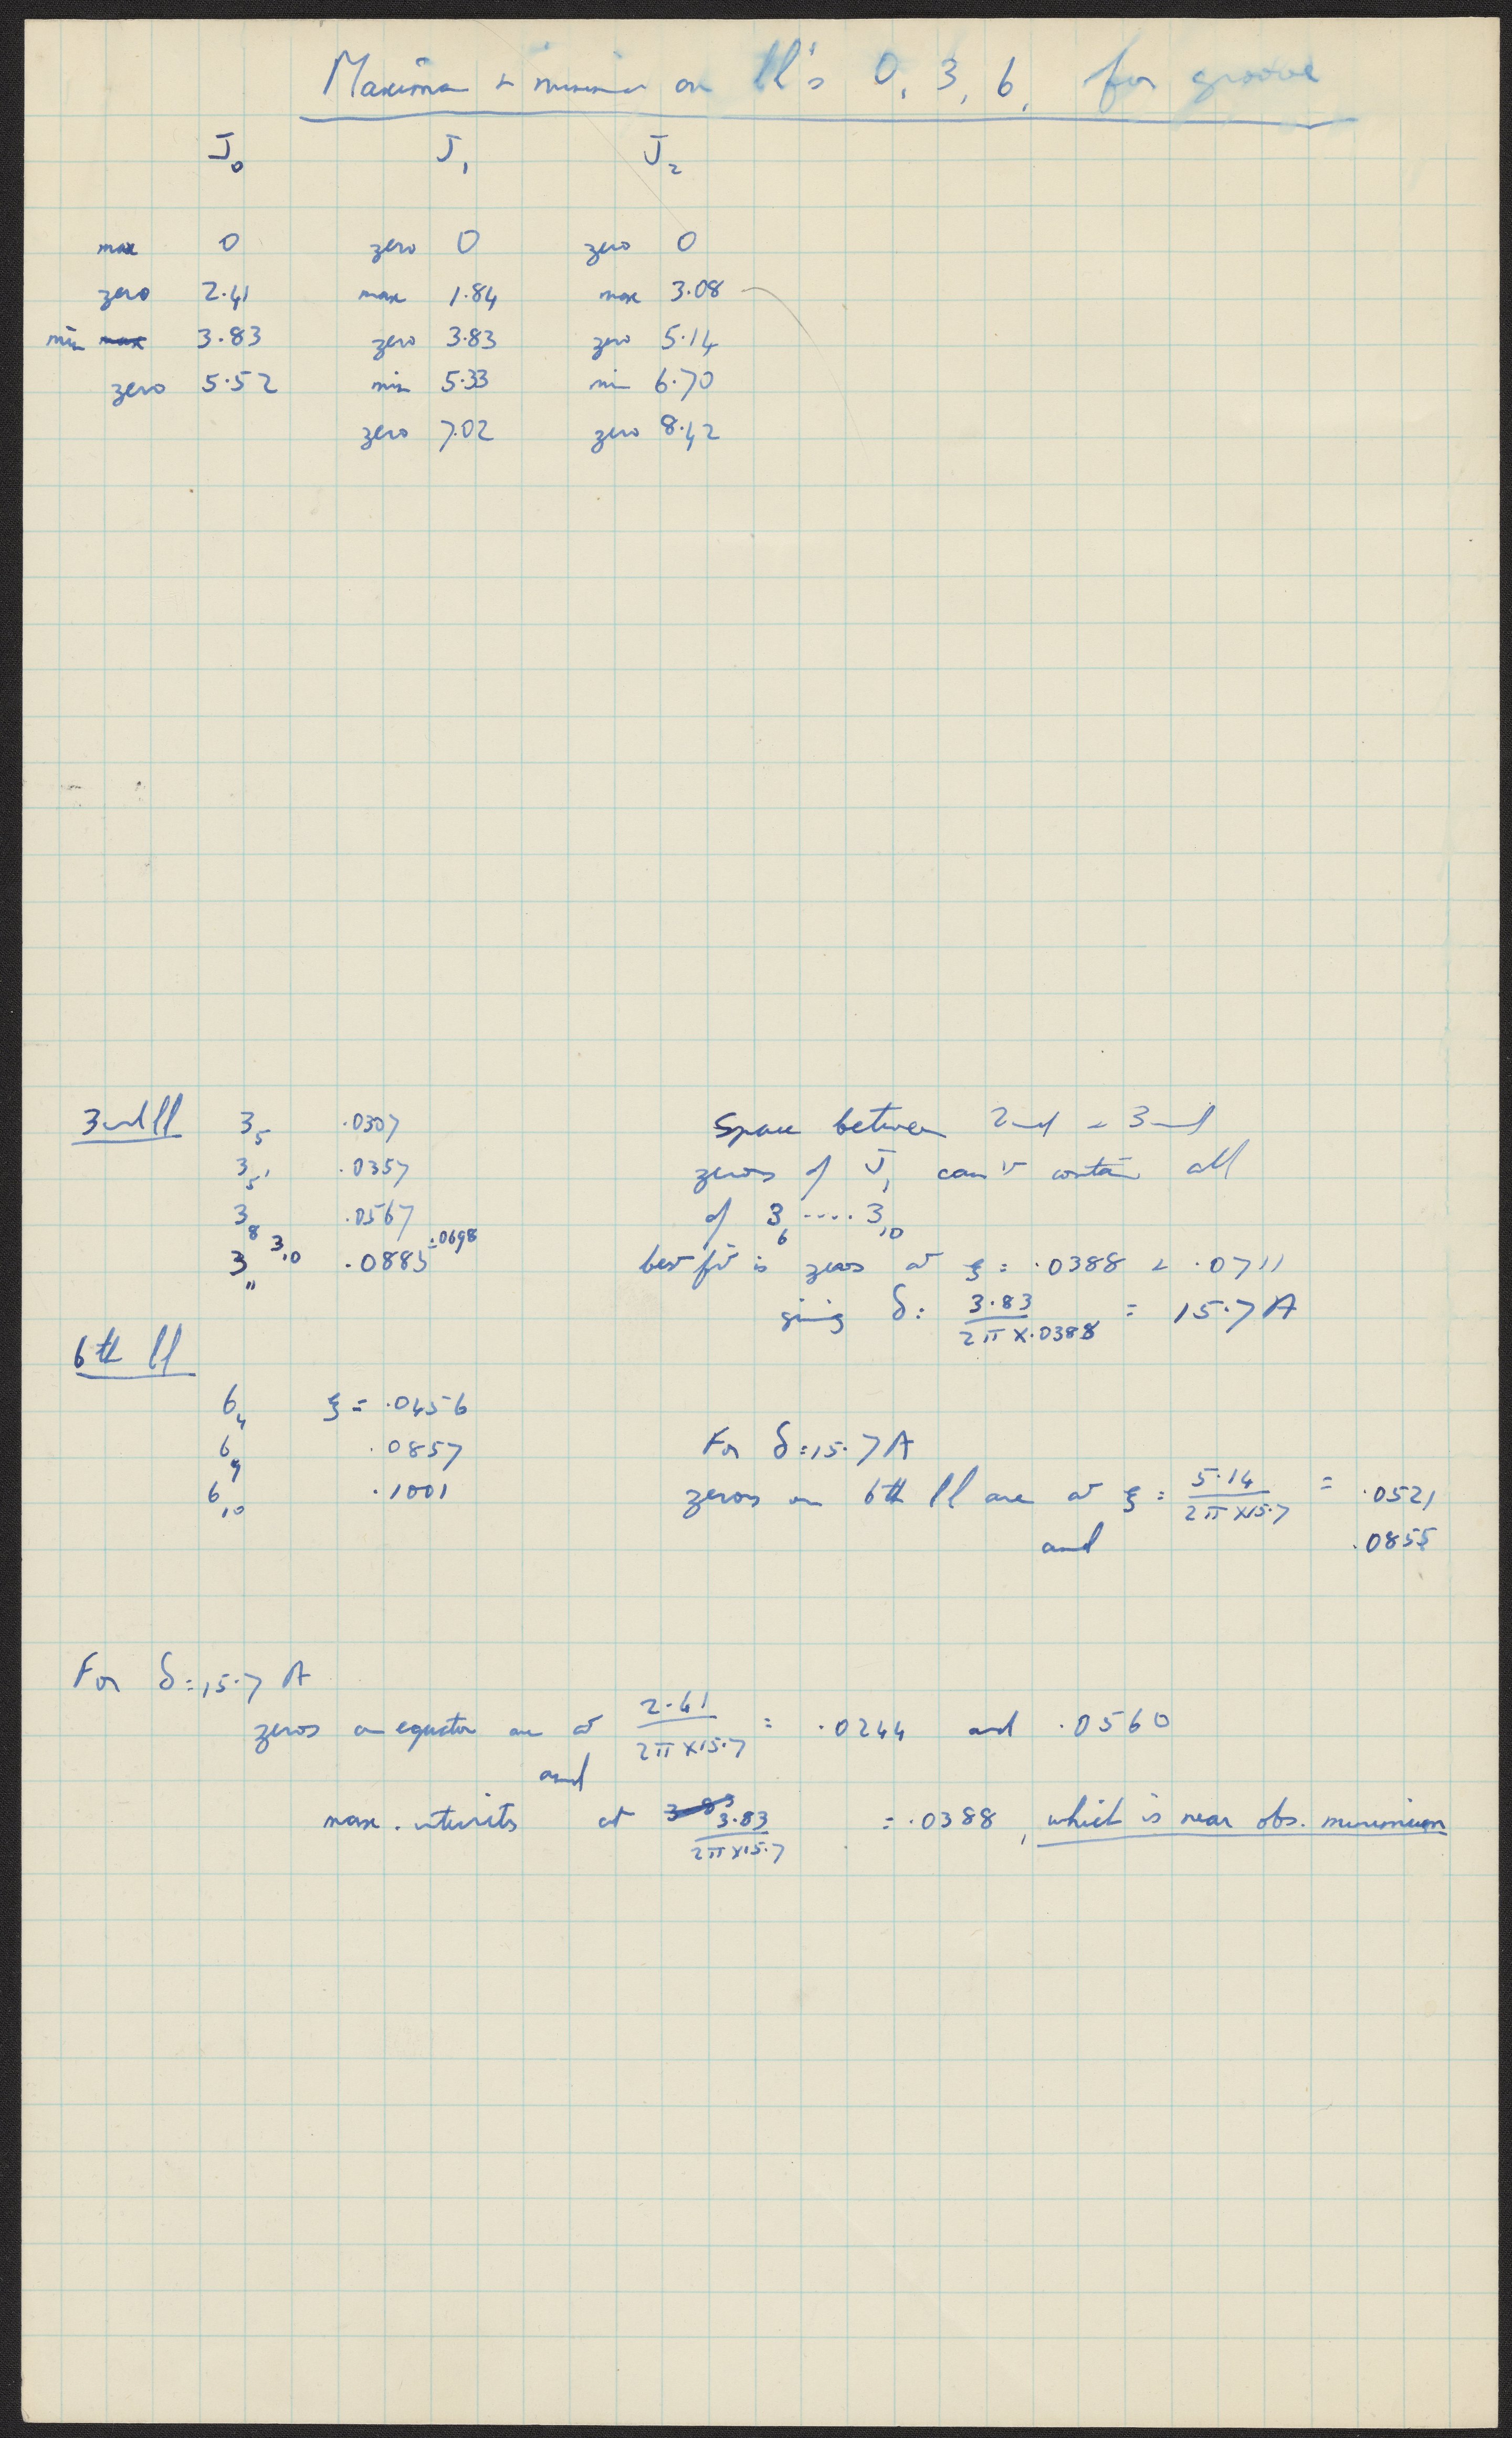 Maxima + minima on ll's 0, 3, 6, for groove
J₀ J₁ J₂
max 0 zero 0 zero 0
zero 2.41 max 1.84 max 3.08
min max 3.83 zero 3.83 zero 5.14
zero 5.52 min 5.33 min 6.70
zero 7.02 zero 8.42
3rd ll 3₅ .0307
3₅' .0357
3₈ .0567
3₁₁ 3₁₀ .0885 .0698
Space between 2nd + 3rd
zeros of J₁ can't contain all
of 3₆ .... 3₁₀
best fit is zeros at ξ = .0388 + .0711
giving δ = 3.83 / 2π × .0388 = 15.7 A
6th ll
6₄ ξ = .0456
6₉ .0857
6₁₀ .1001
For δ = 15.7 A
zeros on 6th ll are at ξ = 5.14 / 2π × 15.7 = .0521
and .0855
For δ = 15.7 A
zeros on equator are at 2.41 / 2π × 15.7 = .0244 and .0560
and
max. intensity at 3.83 3.83 / 2π × 15.7 = .0388, which is near obs. minimum